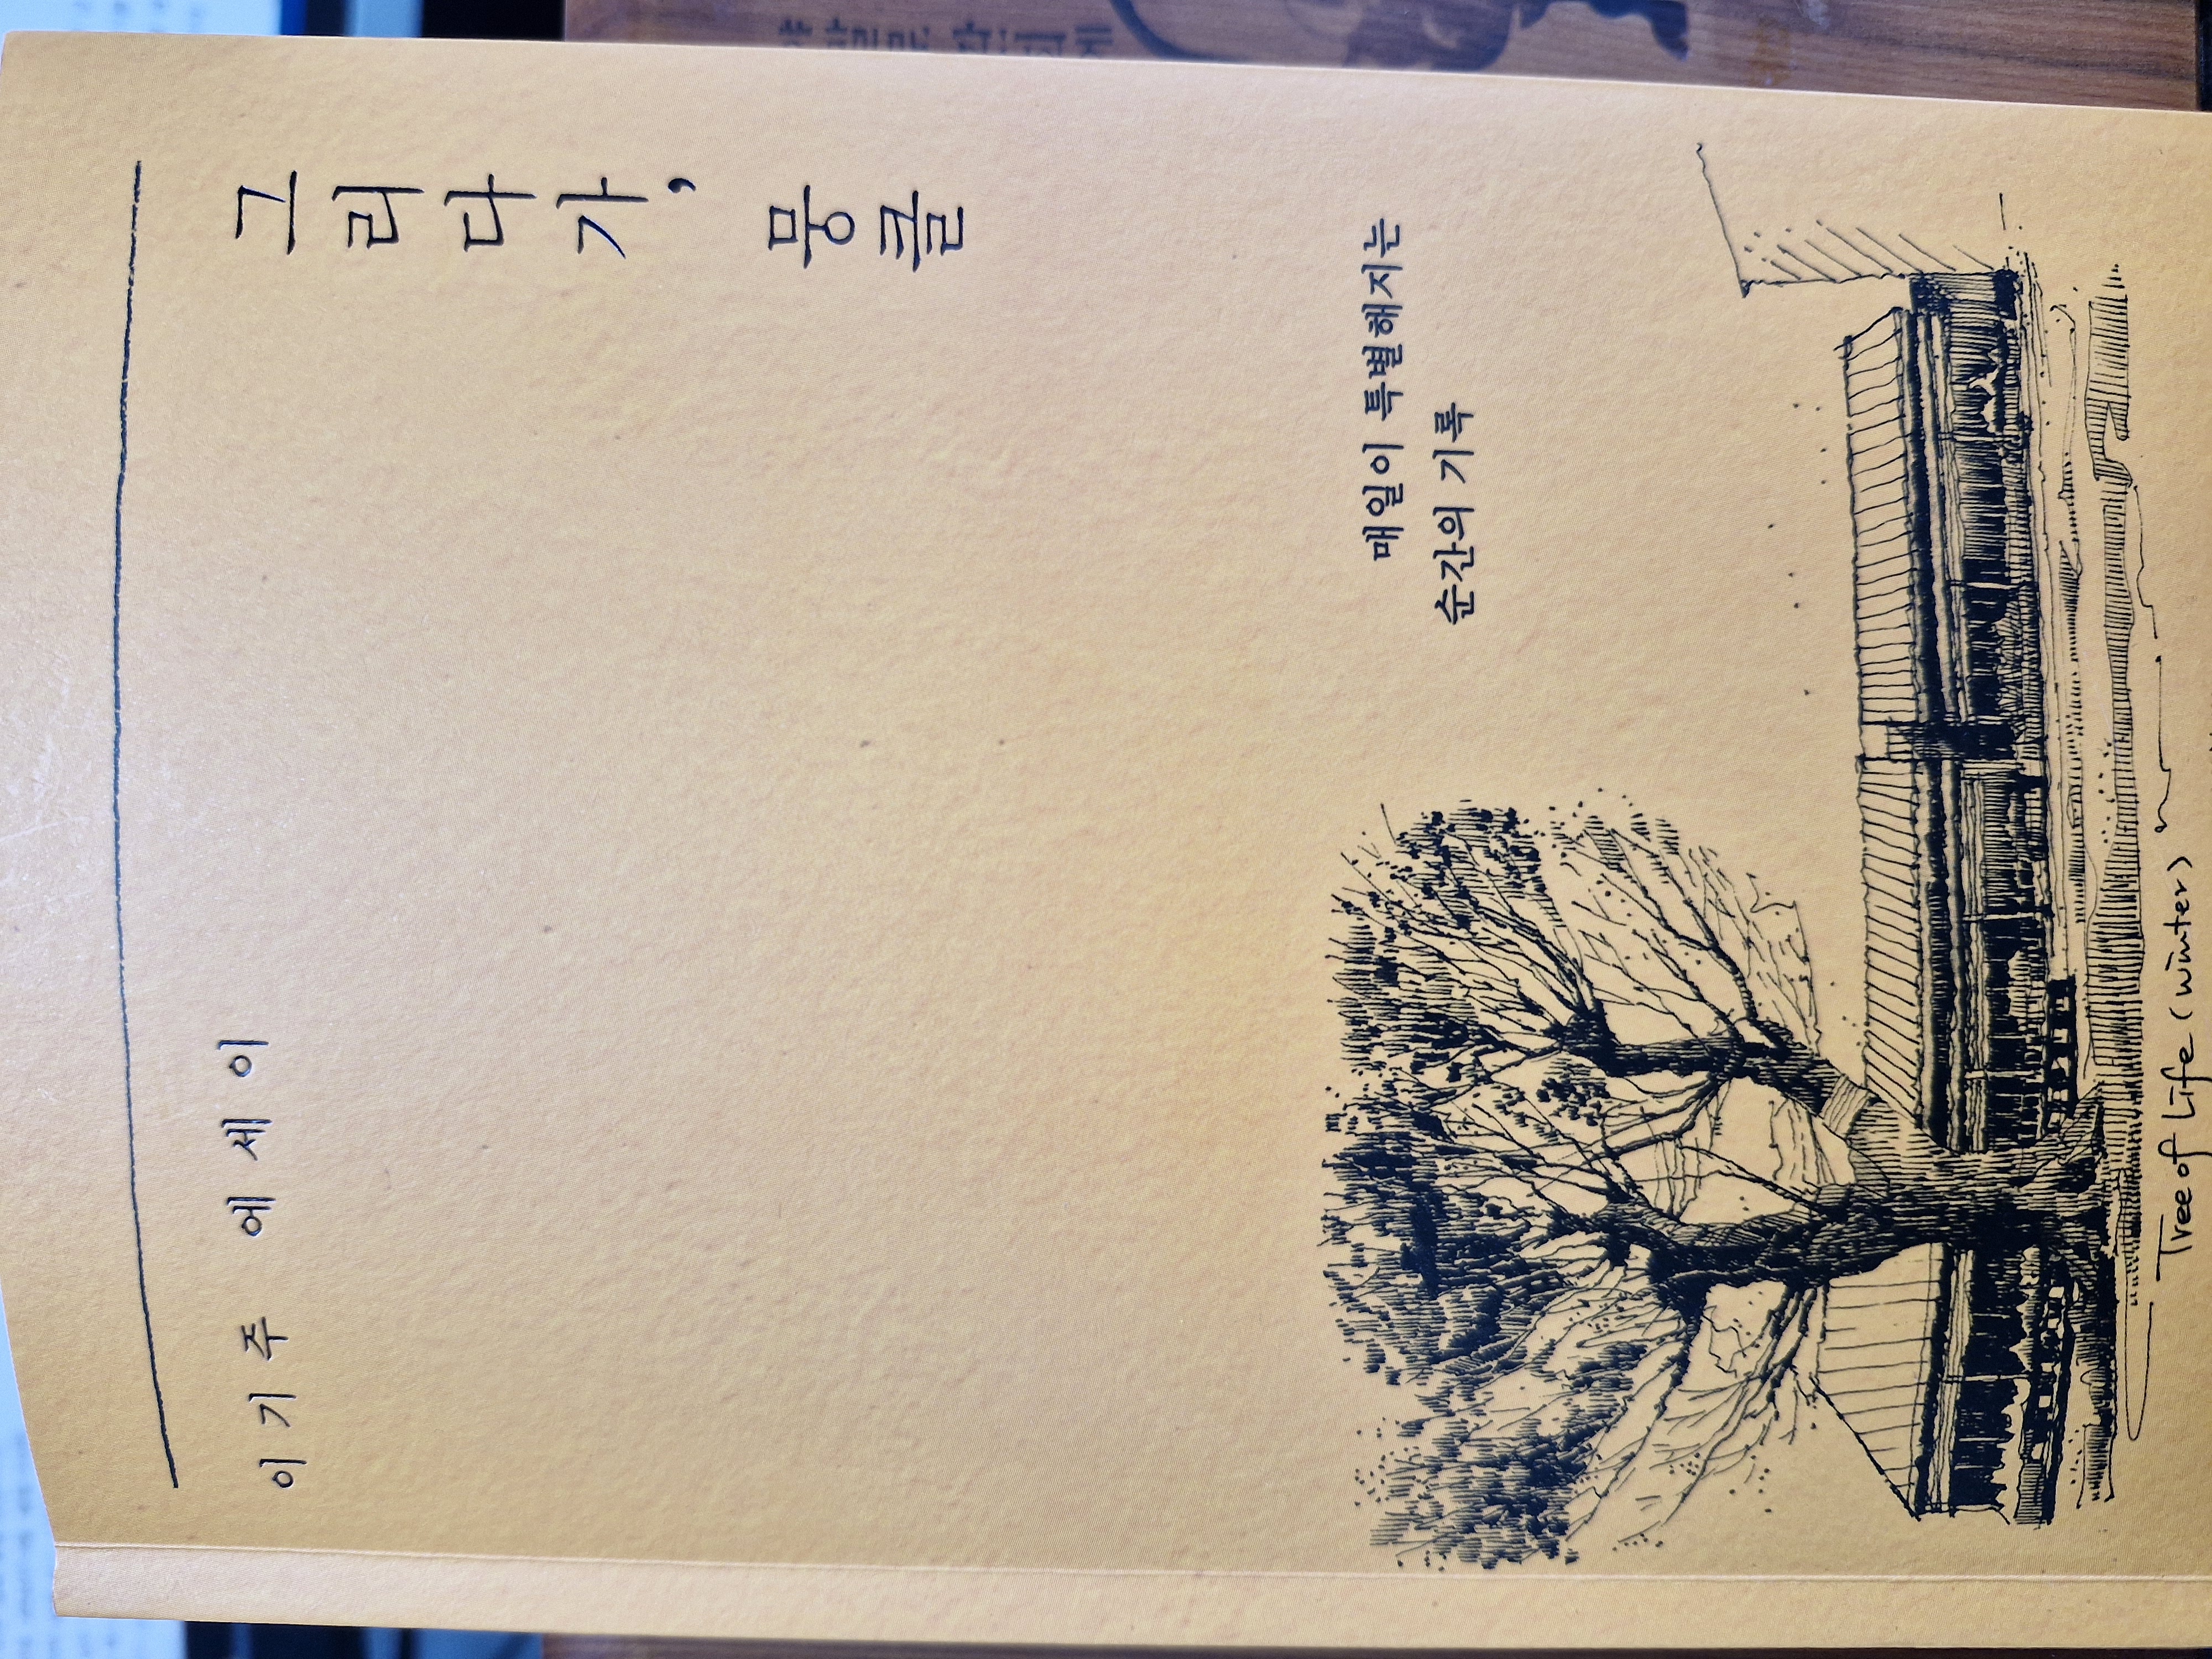 그리다가, 뭉클
이기주 에세이
매일이 특별해지는
순간의 기록
Tree of Life (winter)